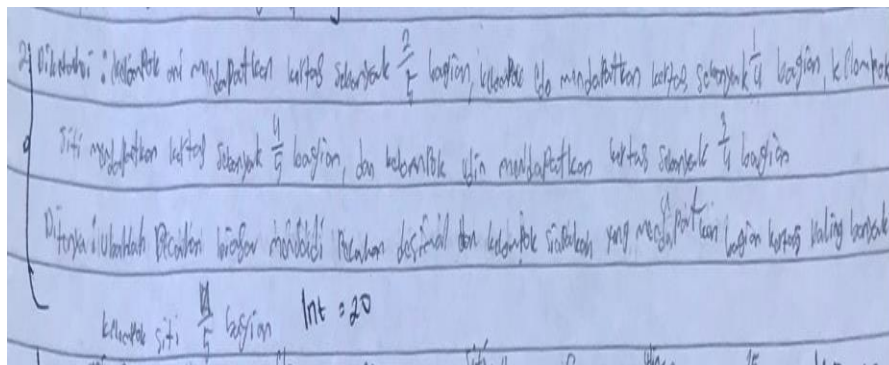 2) Diketahui : kelompok ani mendapatkan kertas sebanyak 2/5 bagian, kelompok edo mendapatkan kertas sebanyak 1/4 bagian, kelompok
Siti mendapatkan kertas sebanyak 4/5 bagian, dan kelompok udin mendapatkan kertas sebanyak 3/4 bagian
Ditanya : ubahlah pecahan biasa menjadi pecahan desimal dan kelompok siapakah yang mendapatkan bagian kertas paling banyak
kelompok siti 4/5 bagian